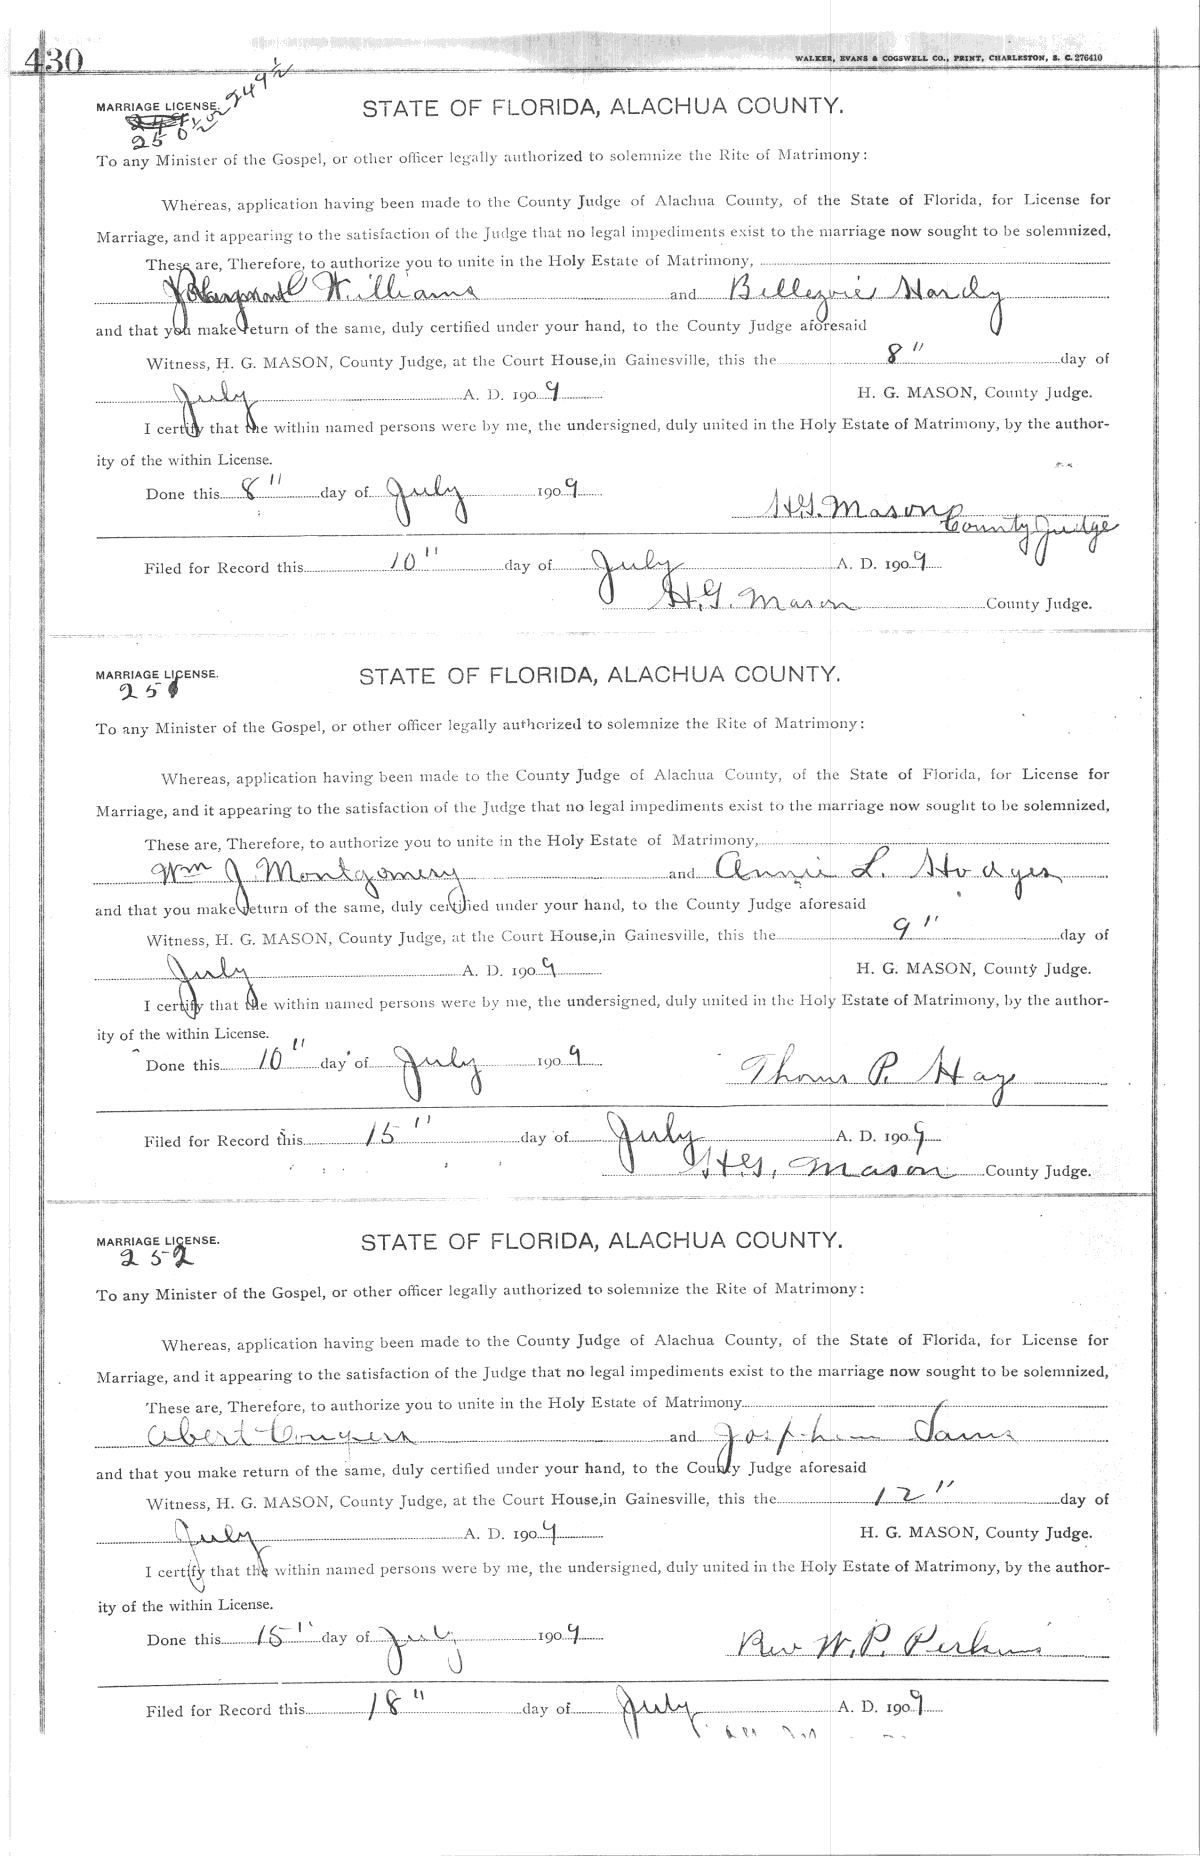 430
WALKER, EVANS & COGSWELL CO., PRINT, CHARLESTON, S. C. 276410
MARRIAGE LICENSE. STATE OF FLORIDA, ALACHUA COUNTY.
250 1/2 or 249 1/2
To any Minister of the Gospel, or other officer legally authorized to solemnize the Rite of Matrimony:
Whereas, application having been made to the County Judge of Alachua County, of the State of Florida, for License for
Marriage, and it appearing to the satisfaction of the Judge that no legal impediments exist to the marriage now sought to be solemnized,
These are, Therefore, to authorize you to unite in the Holy Estate of Matrimony,
Williams and Hardy
and that you make return of the same, duly certified under your hand, to the County Judge aforesaid
Witness, H. G. MASON, County Judge, at the Court House, in Gainesville, this the 8" day of
July A. D. 1909 H. G. MASON, County Judge.
I certify that the within named persons were by me, the undersigned, duly united in the Holy Estate of Matrimony, by the author-
ity of the within License.
Done this 8" day of July 1909 H.G. Mason
County Judge
Filed for Record this 10" day of July A. D. 1909
H.G. Mason County Judge.
MARRIAGE LICENSE. STATE OF FLORIDA, ALACHUA COUNTY.
251
To any Minister of the Gospel, or other officer legally authorized to solemnize the Rite of Matrimony:
Whereas, application having been made to the County Judge of Alachua County, of the State of Florida, for License for
Marriage, and it appearing to the satisfaction of the Judge that no legal impediments exist to the marriage now sought to be solemnized,
These are, Therefore, to authorize you to unite in the Holy Estate of Matrimony,
Wm J. Montgomery and Annie L. Hodges
and that you make return of the same, duly certified under your hand, to the County Judge aforesaid
Witness, H. G. MASON, County Judge, at the Court House, in Gainesville, this the 9" day of
July A. D. 1909 H. G. MASON, County Judge.
I certify that the within named persons were by me, the undersigned, duly united in the Holy Estate of Matrimony, by the author-
ity of the within License.
Done this 10" day of July 1909 Thoms P. Hay
Filed for Record this 15" day of July A. D. 1909
H.G. Mason County Judge.
MARRIAGE LICENSE. STATE OF FLORIDA, ALACHUA COUNTY.
252
To any Minister of the Gospel, or other officer legally authorized to solemnize the Rite of Matrimony:
Whereas, application having been made to the County Judge of Alachua County, of the State of Florida, for License for
Marriage, and it appearing to the satisfaction of the Judge that no legal impediments exist to the marriage now sought to be solemnized,
These are, Therefore, to authorize you to unite in the Holy Estate of Matrimony
Abert Conyers and
and that you make return of the same, duly certified under your hand, to the County Judge aforesaid
Witness, H. G. MASON, County Judge, at the Court House, in Gainesville, this the 12" day of
July A. D. 1909 H. G. MASON, County Judge.
I certify that the within named persons were by me, the undersigned, duly united in the Holy Estate of Matrimony, by the author-
ity of the within License.
Done this 15" day of July 1909 Rev W. P. Perkins
Filed for Record this 18" day of July A. D. 1909